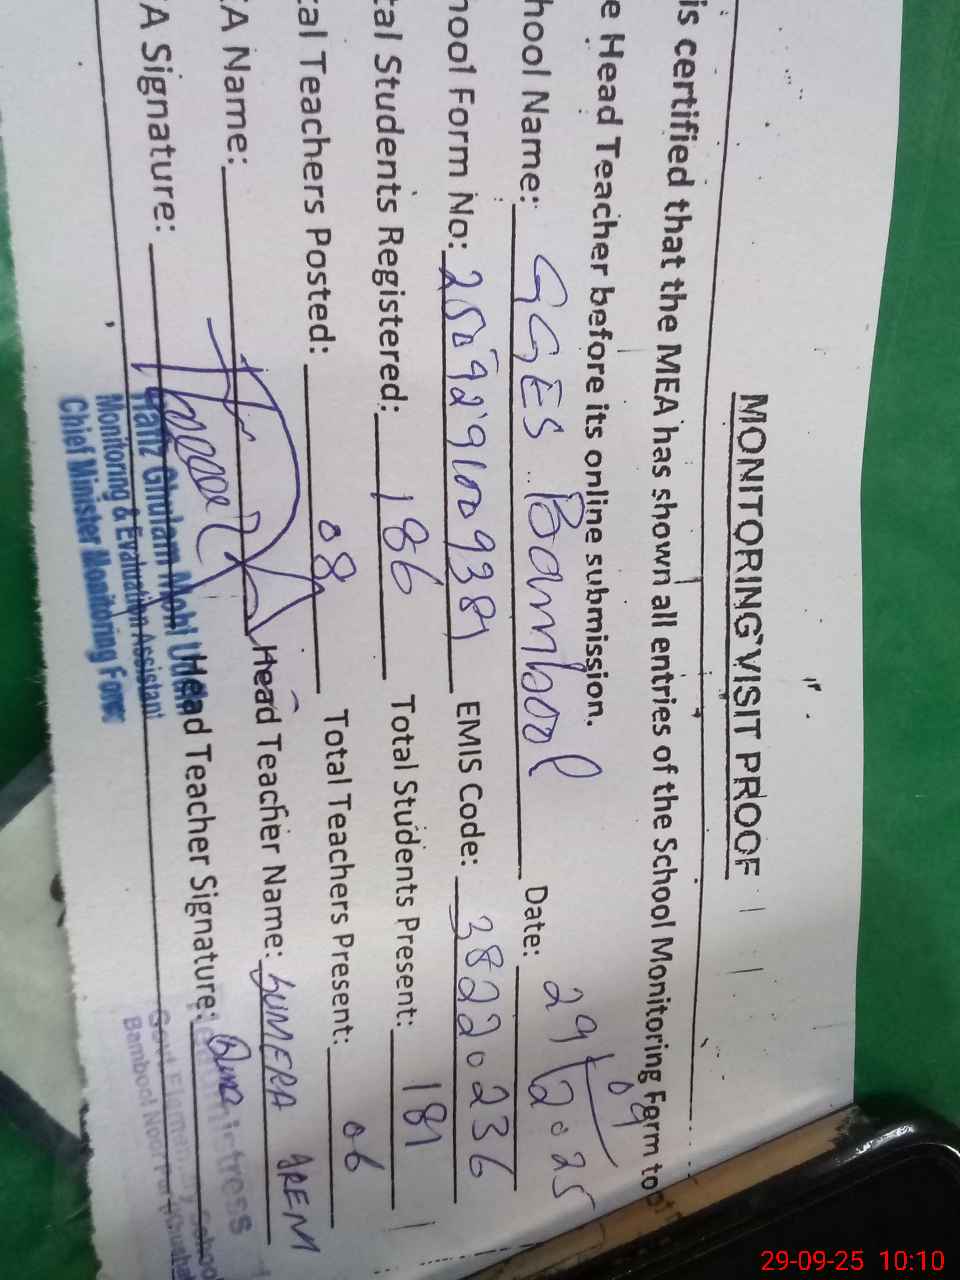 MONITORING VISIT PROOF
is certified that the MEA has shown all entries of the School Monitoring Form to
e Head Teacher before its online submission.
hool Name: GGES Bambool Date: 29/09/2025
hool Form No: EMIS Code: 38220236
tal Students Registered: 186 Total Students Present: 181
tal Teachers Posted: 08 Total Teachers Present: 06
EA Name: Head Teacher Name: SUMERA AREM
A Signature: Head Teacher Signature:
Hafiz Ghulam Mohi Uddin
Monitoring & Evaluation Assistant
Chief Minister Monitoring Force
Govt Elementary School
Bambool Noorpur
29-09-25 10:10